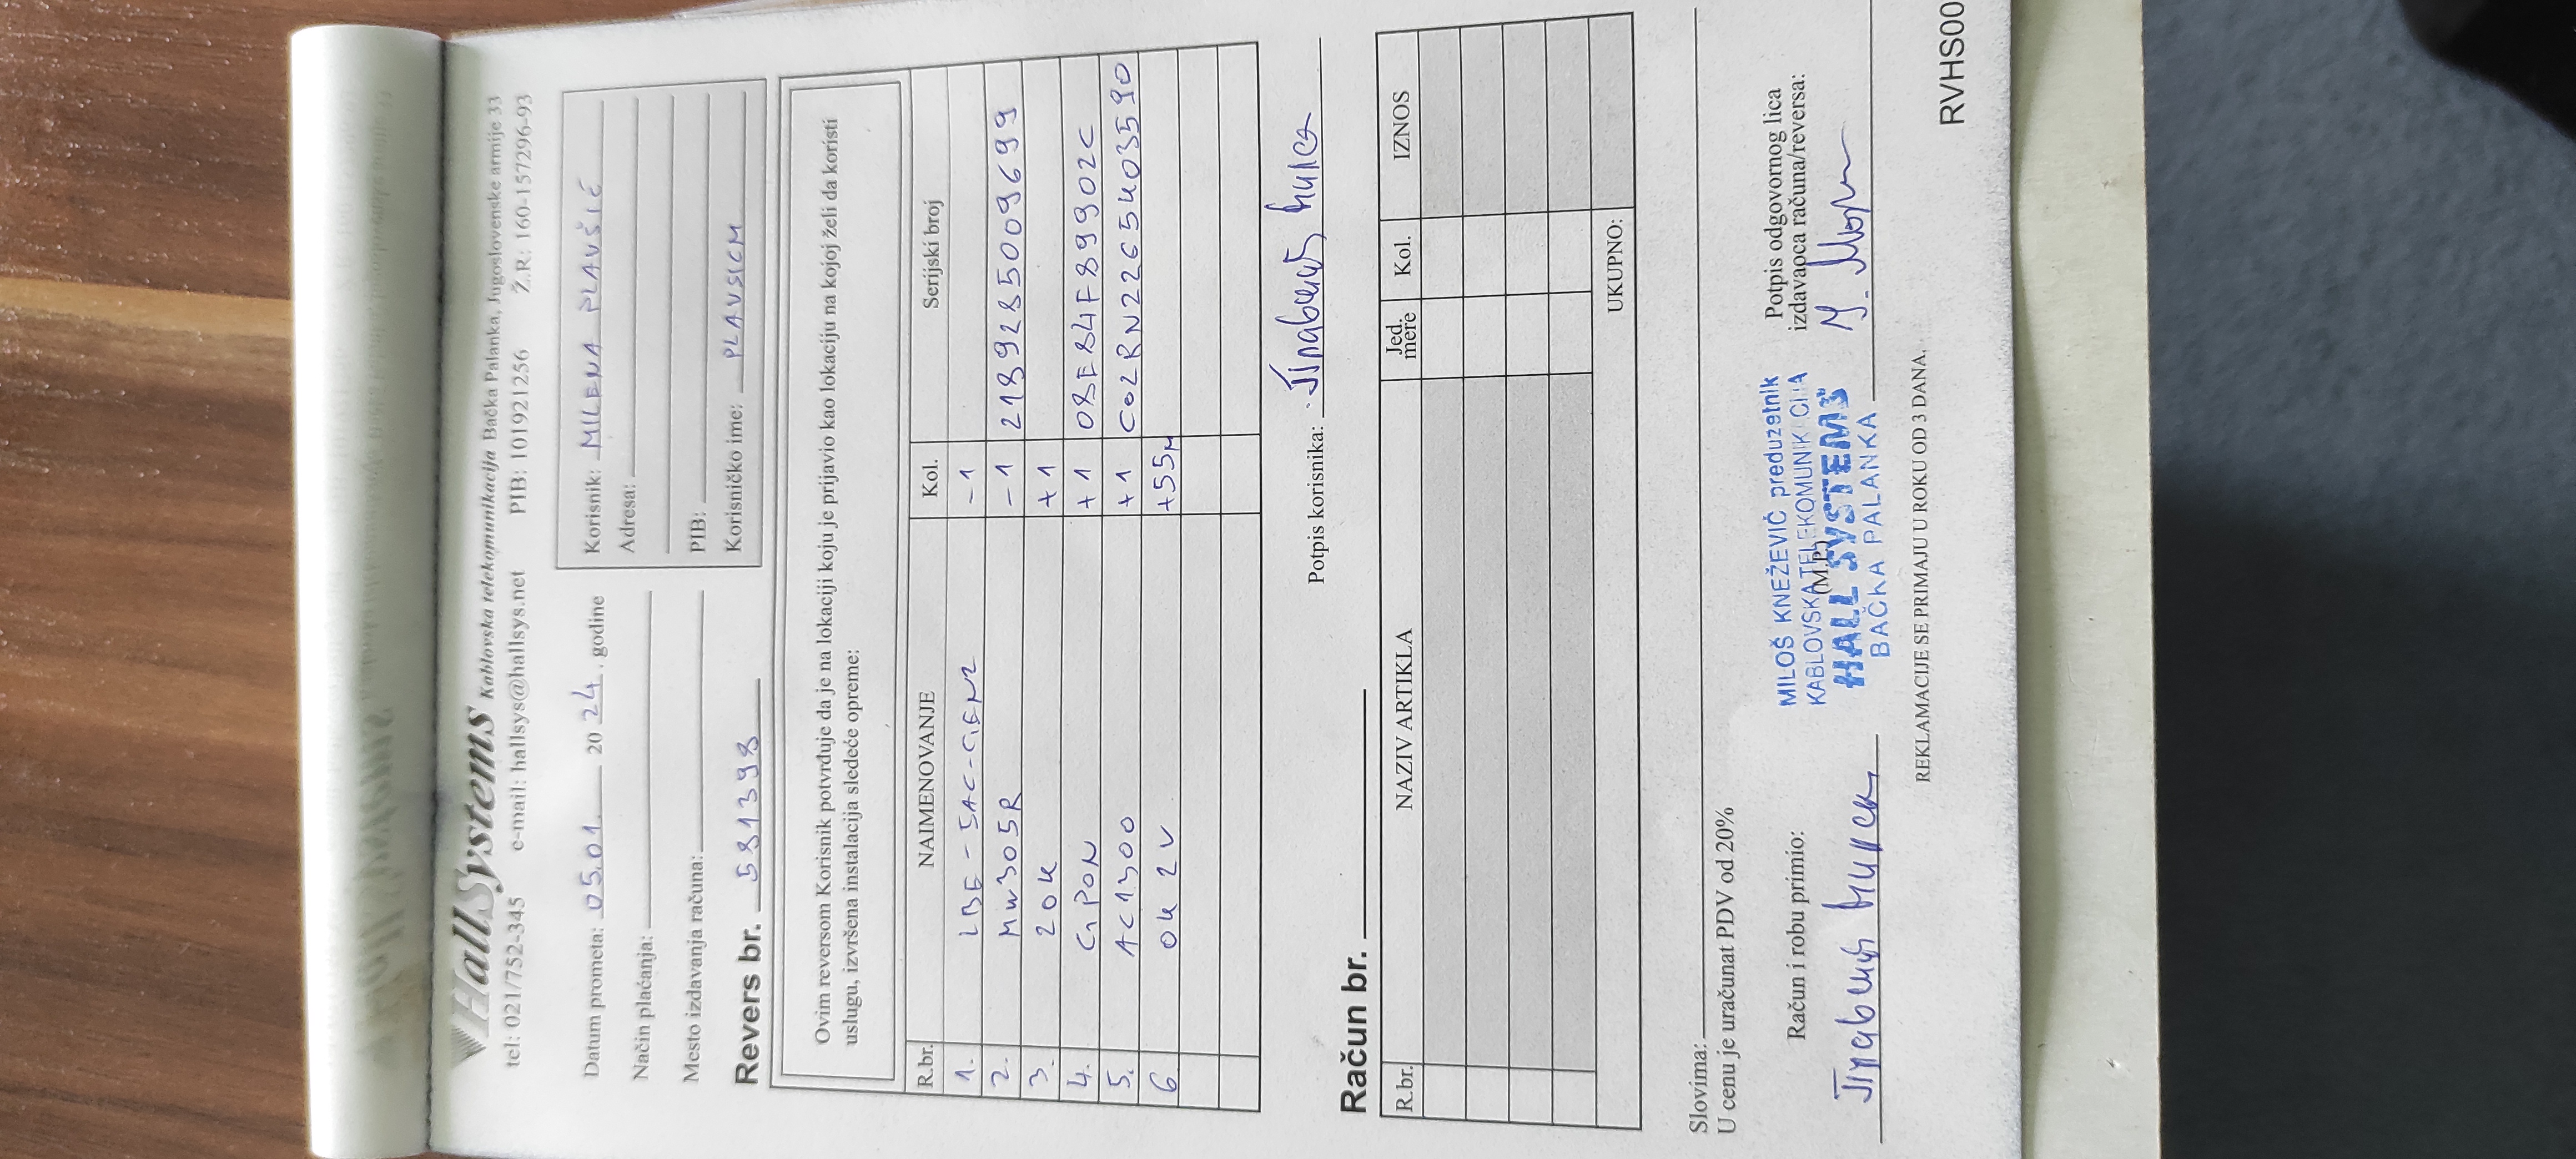 HallSystems Kablovska telekomunikacija Bačka Palanka, Jugoslovenske armije 33
tel: 021/752-345 e-mail: hallsys@hallsys.net PIB: 101921256 Ž.R.: 160-157296-93
Datum prometa: 05.01. 20 24. godine
Način plaćanja:
Mesto izdavanja računa:
Korisnik: MILENA PLAVŠIĆ
Adresa:
PIB:
Korisničko ime: PLAVSICM
Revers br. 581398
Ovim reversom Korisnik potvrđuje da je na lokaciji koju je prijavio kao lokaciju na kojoj želi da koristi
uslugu, izvršena instalacija sledeće opreme:
R.br. NAIMENOVANJE Kol. Serijski broj
1. LBE-5AC-GEN2 -1
2. MW305R -1 2189285009699
3. 20K +1
4. GPON +1 08E84F89902C
5. AC1300 +1 C02RN22654035 90
6 OK 2V +55M
Potpis korisnika: Плавшић Милена
Račun br.
R.br. NAZIV ARTIKLA Jed. mere Kol. IZNOS
UKUPNO:
Slovima:
U cenu je uračunat PDV od 20%
Račun i robu primio:
Плавшић Милена
(M.P.)
MILOŠ KNEŽEVIĆ preduzetnik
KABLOVSKA TELEKOMUNIKACIJA
HALL SYSTEMS
BAČKA PALANKA
Potpis odgovornog lica
izdavaoca računa/reversa:
REKLAMACIJE SE PRIMAJU U ROKU OD 3 DANA.
RVHS00